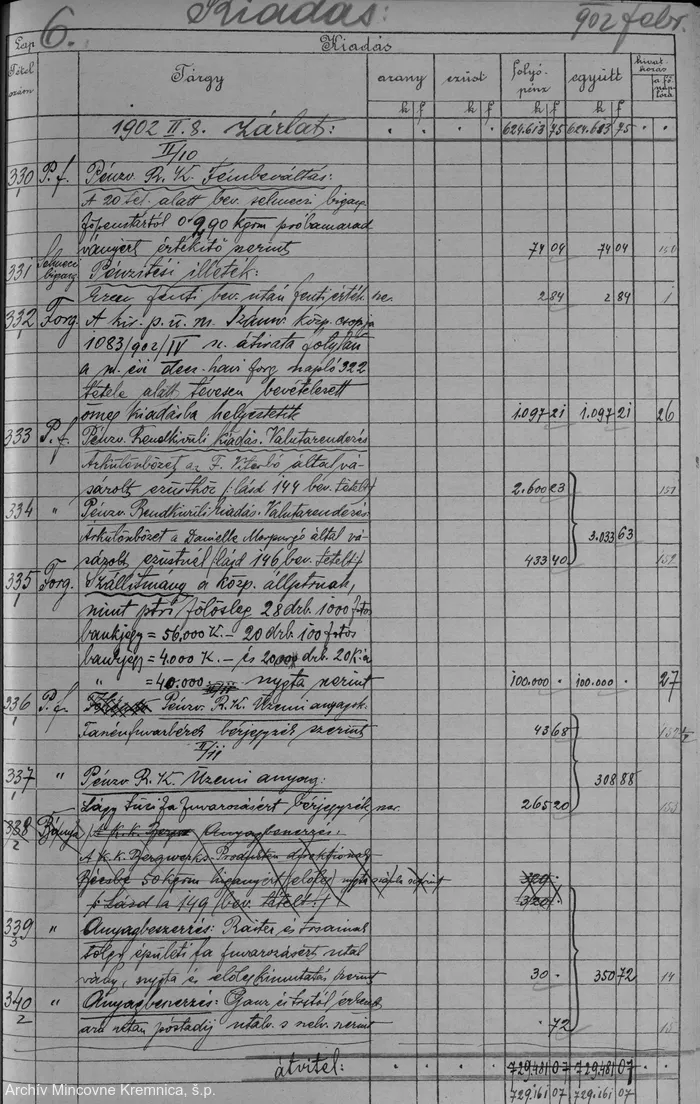 Kiadás:
902 febr.
6.
Lap
Kiadás
Tétel szám
Tárgy
arany
ezüst
folyó-pénz
együtt
hivat-kozás
a fő-nap-lóra
k f k f k f k f
1902 II. 8. Zárlat: 624.613 75 624.613 75
II/10
330 P. f. Pénzv. R. K. Fémbeváltás:
A 20 tél. alatt bev. selmeczi bigazg.
próbamarad
ványért értékítő szerint 74 04 74 04 150
331 Selmeci bigazg. Pénzítési illeték:
Ezen fenti bev. után fenti érték. sz. 2 84 2 84 1
332 Forg. A kir. p. ü. m. Szám. közp. csopja
1083/902/IV sz. átirata folytán
a m. évi decz. havi forg. napló 322
tétele alatt tévesen bevételezett
összeg kiadásba helyeztetik 1.097 21 1.097 21 26
333 P. f. Pénzv. Rendkívüli kiadás. Valutarendezés
Árkülönbözet az F. Viterbó által vá-
sárolt ezüsthöz /: lásd 144 bev. tételt :/ 2.600 23 151
334 " Pénzv. Rendkívüli kiadás. Valutarendezés.
Árkülönbözet a Danielle Morpurgó által vá-
3.033 63
sárolt ezüstnél /: lásd 146 bev. tételt :/ 433 40 152
335 Forg. Szállítmány a közp. állptrnak,
mint ptri fölösleg 28 drb. 1000 frtos
bankjegy = 56.000 K. – 20 drb. 100 frtos
bankjegy = 4.000 K. – és 2000 drb. 20 K-ás
" = 40.000 nyugta szerint 100.000 . 100.000 . 27
336 P. f. Pénzv. R. K. Üzemi anyagok.
Faszénfuvarbérek bérjegyzék szerint 43 68 152
II/11
337 " Pénzv. R. K. Üzemi anyag:
308 88
Lágy tűzifa fuvarozásért bérjegyzék sz. 265 20 153
338 2 Bányá Anyagbeszerzés:
A K. k. Bergwerks-Produkten
Bécsbe 50 kgrm higanyért /előleg/ 320.
/: Lásd a 149 bev. tételt :/ 320.
339 3 " Anyagbeszerzés: Raiter és társainak
tölgy épületi fa fuvarozásért utal
vány, nyugta és előlegkimutatás szerint 30 . 350 72 14
340 2 " Anyagbeszerzés: Ganz és trstól érkezett
áru után póstadíj utalv. s nelv. szerint . 72 15
átvitel: 729.481 07 729.481 07
729.161 07 729.161 07
Archív Mincovne Kremnica, š.p.